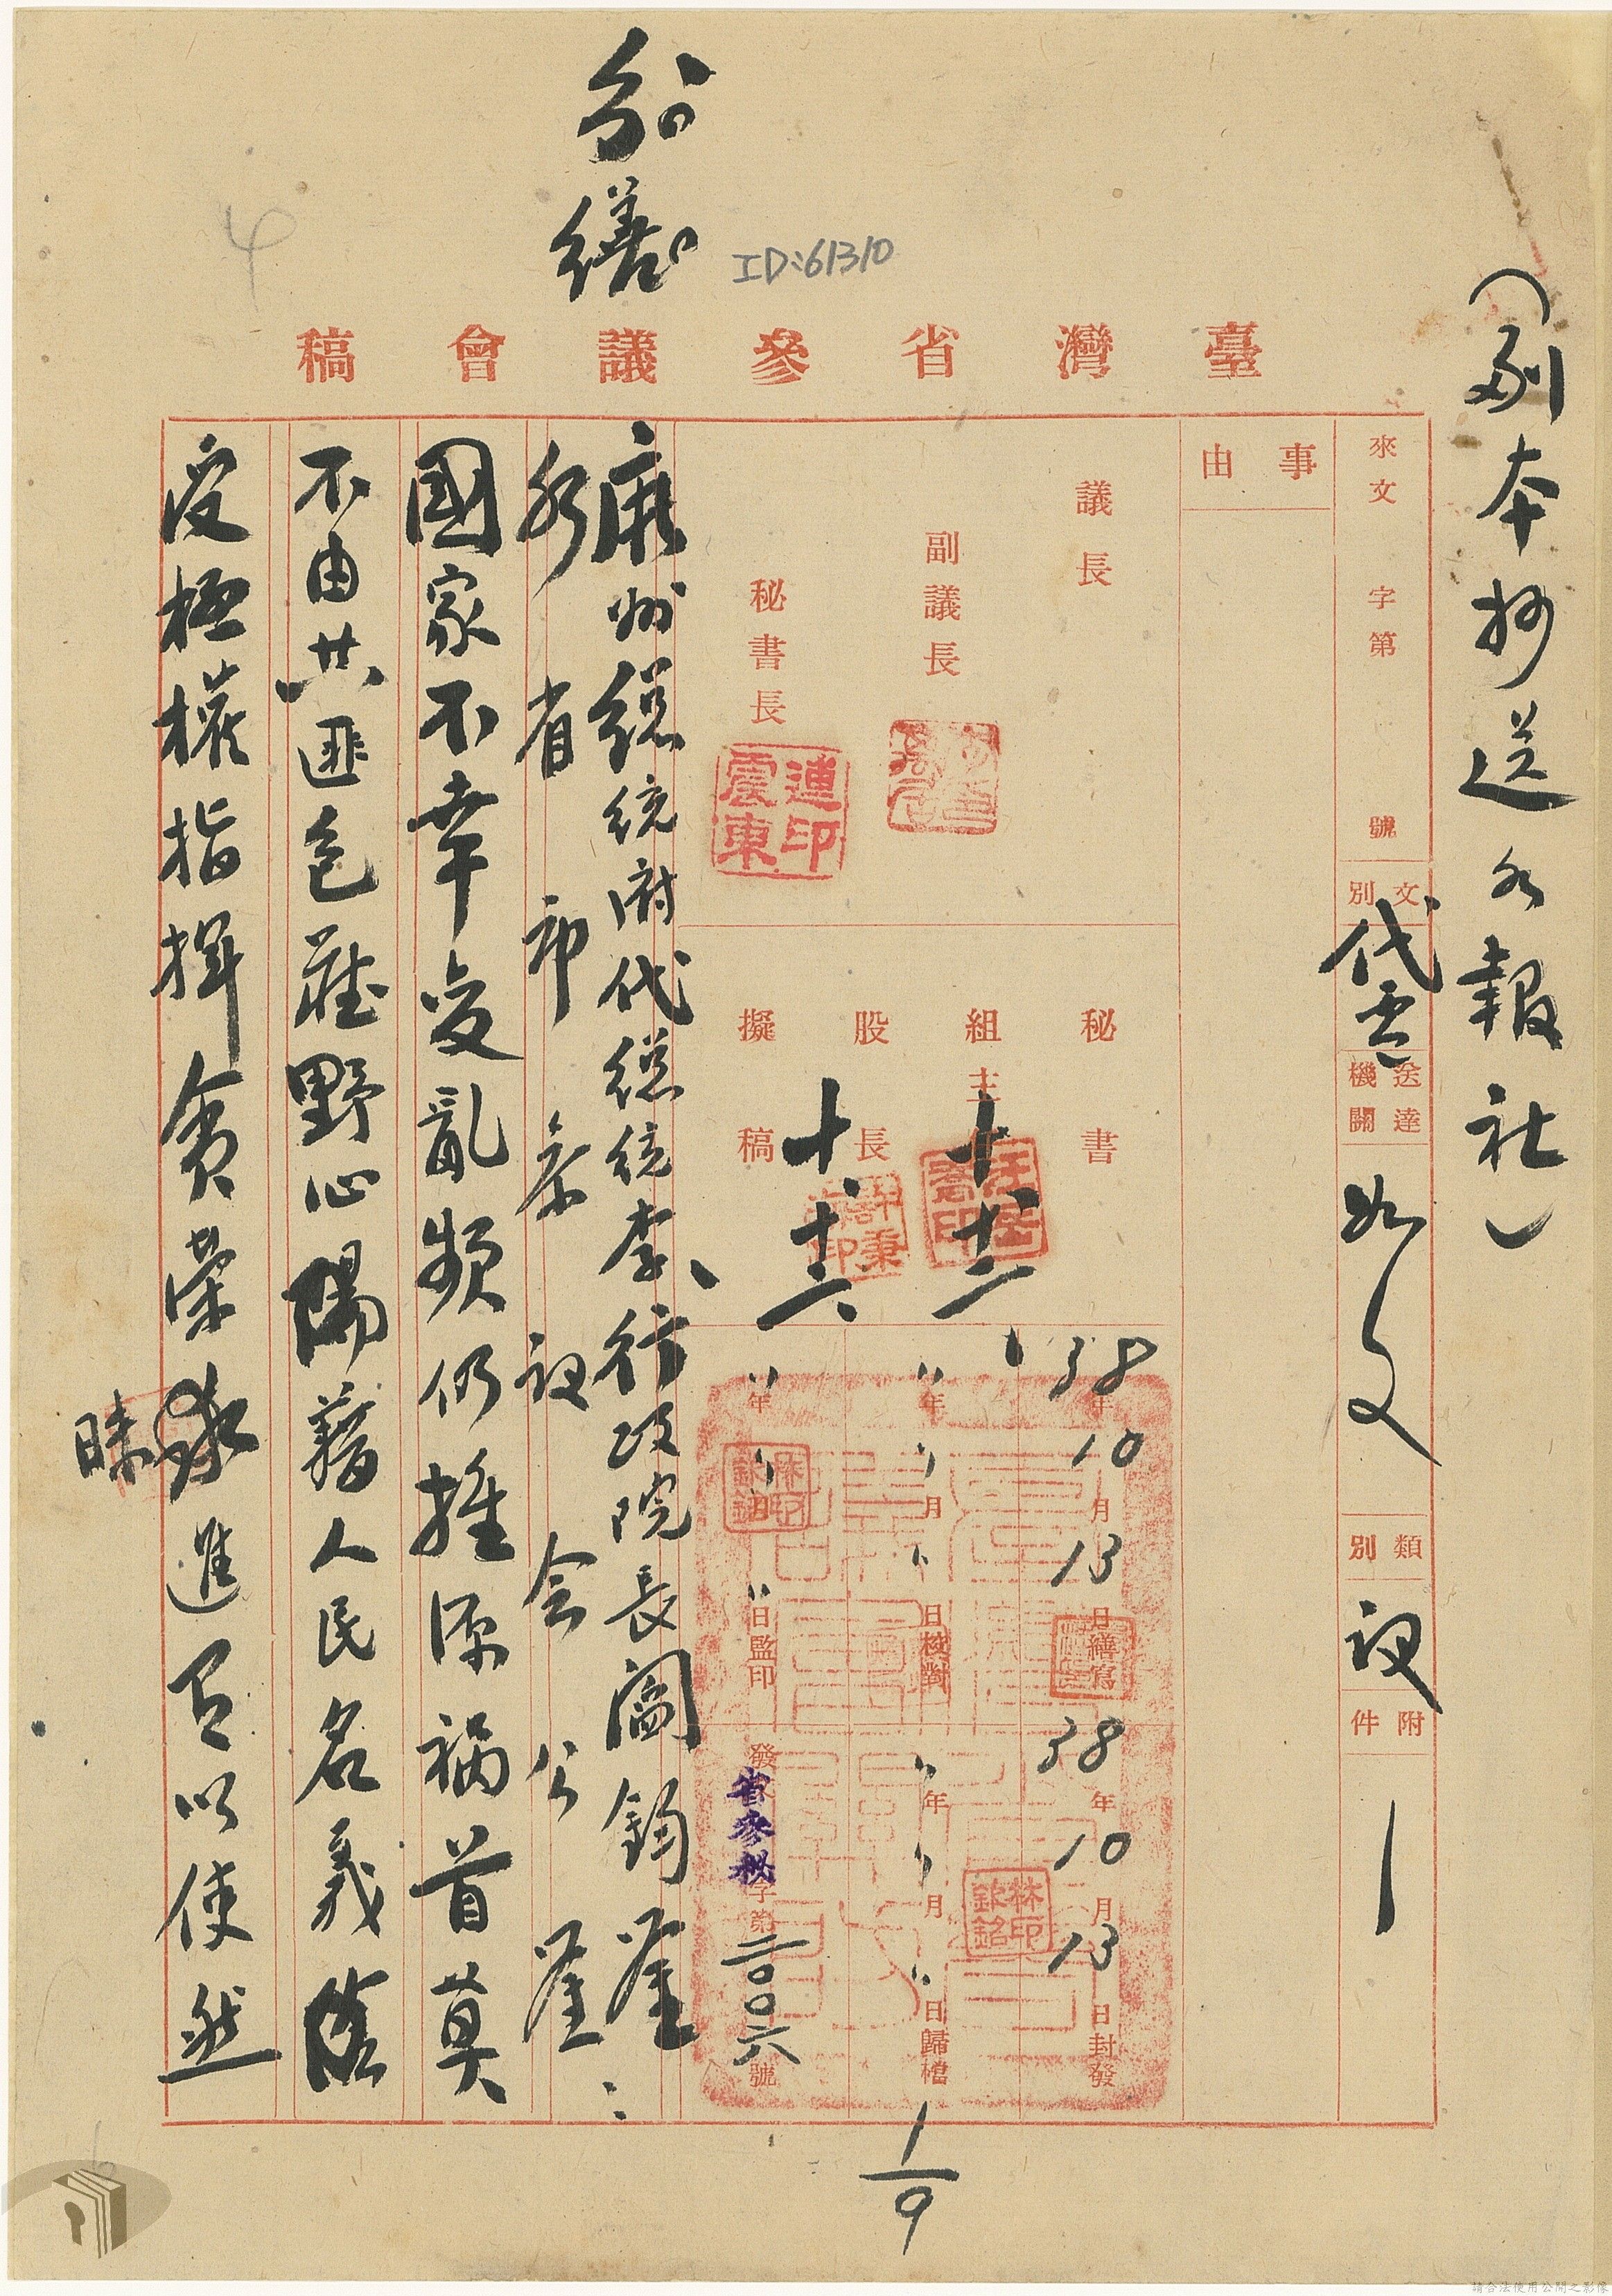 分繕
ID:61310
4
臺灣省參議會稿
(副本抄送各報社)
來文 字第 號
文別 代電
送達機關 如文
類別 議
附件
事由
議長
副議長
秘書長
連震東印
秘書
組主
股長
擬稿
十、十二
十、十二、
38年10月13日繕寫
〃年〃月〃日校對
〃年〃月〃日監印
38年10月13日封發
〃年〃月〃日歸檔
發 省參秘字第二〇〇六號
林欽銘印
廣州總統府代總統李、行政院長閻鈞鑒:
各省市參議會公鑒
國家不幸變亂頻仍推源禍首莫
不由共匪包藏野心陽藉人民名義陰
受極權指揮賣榮求進有以使然
昧
1/9